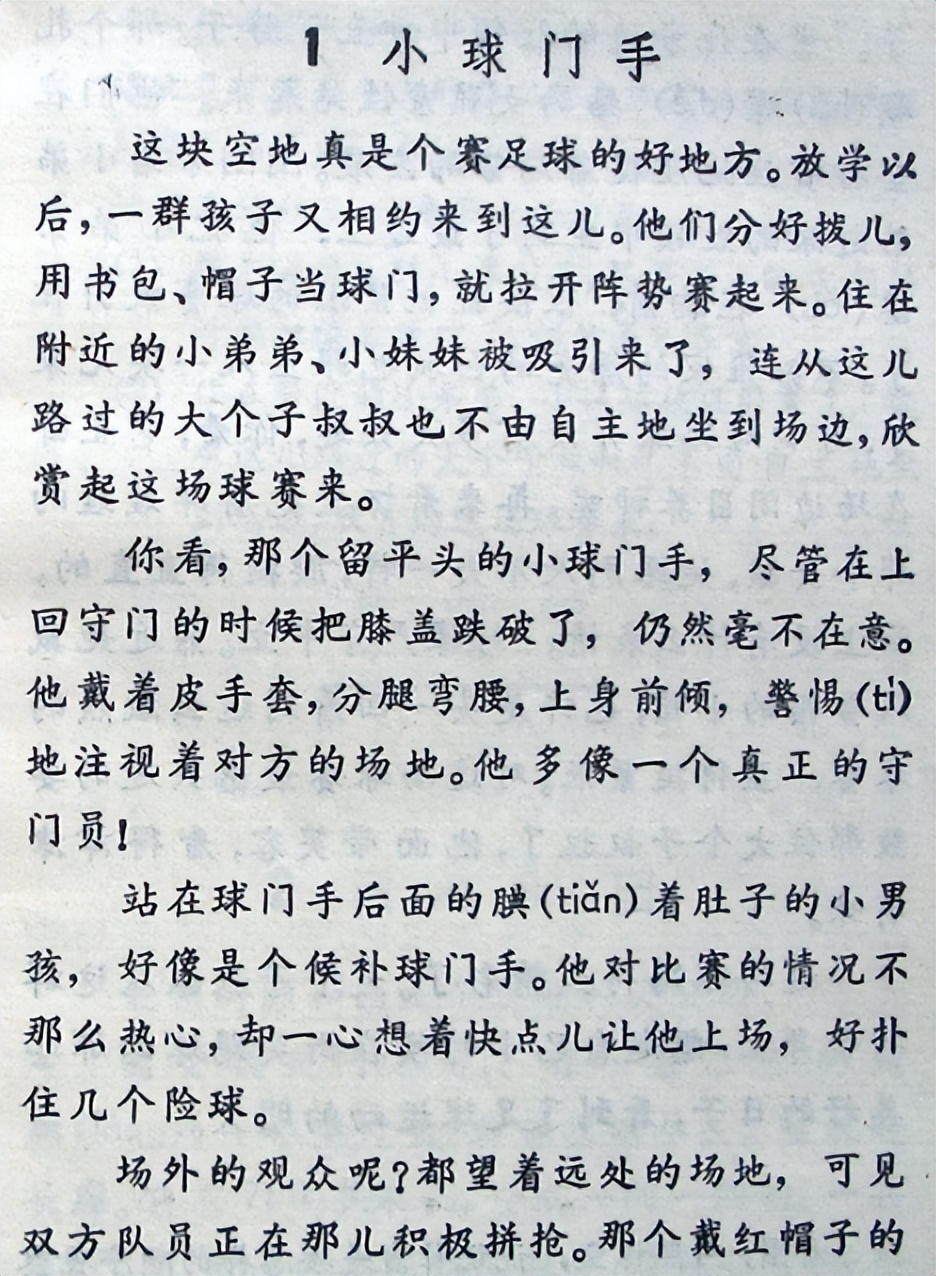 1 小球门手
这块空地真是个赛足球的好地方。放学以
后，一群孩子又相约来到这儿。他们分好拨儿，
用书包、帽子当球门，就拉开阵势赛起来。住在
附近的小弟弟、小妹妹被吸引来了，连从这儿
路过的大个子叔叔也不由自主地坐到场边，欣
赏起这场球赛来。
你看，那个留平头的小球门手，尽管在上
回守门的时候把膝盖跌破了，仍然毫不在意。
他戴着皮手套，分腿弯腰，上身前倾，警惕(tì)
地注视着对方的场地。他多像一个真正的守
门员！
站在球门手后面的腆(tiǎn)着肚子的小男
孩，好像是个候补球门手。他对比赛的情况不
那么热心，却一心想着快点儿让他上场，好扑
住几个险球。
场外的观众呢？都望着远处的场地，可见
双方队员正在那儿积极拼抢。那个戴红帽子的